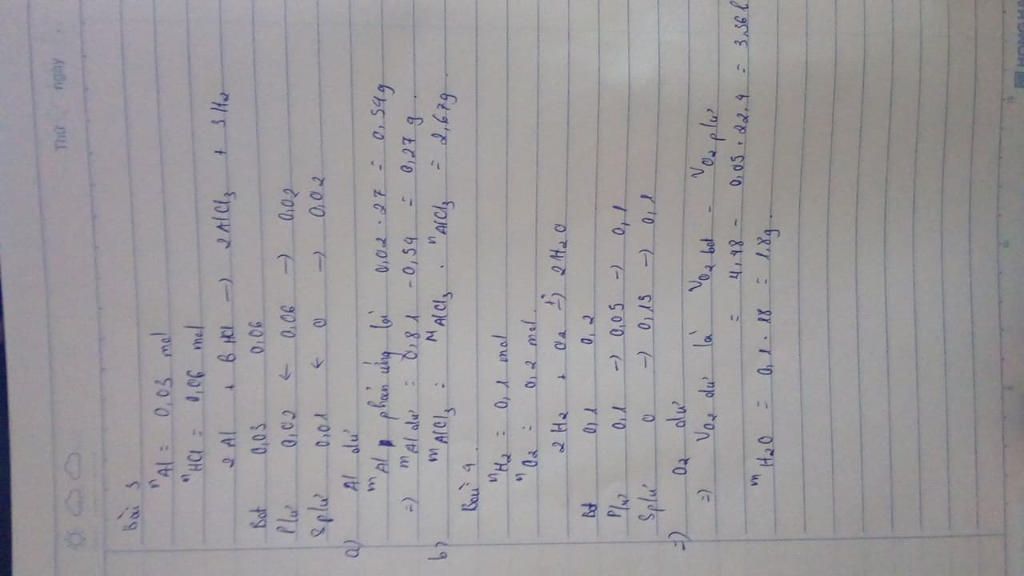 Thứ ngày
Bài 3
nAl = 0,03 mol
nHCl = 0,06 mol
2Al + 6HCl → 2AlCl3 + 3H2
Bđ 0,03 0,06
P/ư 0,02 ← 0,06 → 0,02
Sp/ư 0,01 ← 0 → 0,02
a) Al dư
mAl phản ứng là 0,02 . 27 = 0,54g
=) mAl dư = 0,81 - 0,54 = 0,27g.
b) mAlCl3 = MAlCl3 . nAlCl3 = 2,67g
Bài 4
nH2 = 0,1 mol
nO2 = 0,2 mol
2H2 + O2 → 2H2O
Bđ 0,1 0,2
P/ư 0,1 → 0,05 → 0,1
Sp/ư 0 → 0,15 → 0,1
=) O2 dư
=) VO2 dư là VO2 bđ - VO2 p/ư
= 4,48 - 0,05 . 22,4 = 3,36l
mH2O = 0,1 . 18 = 1,8g.